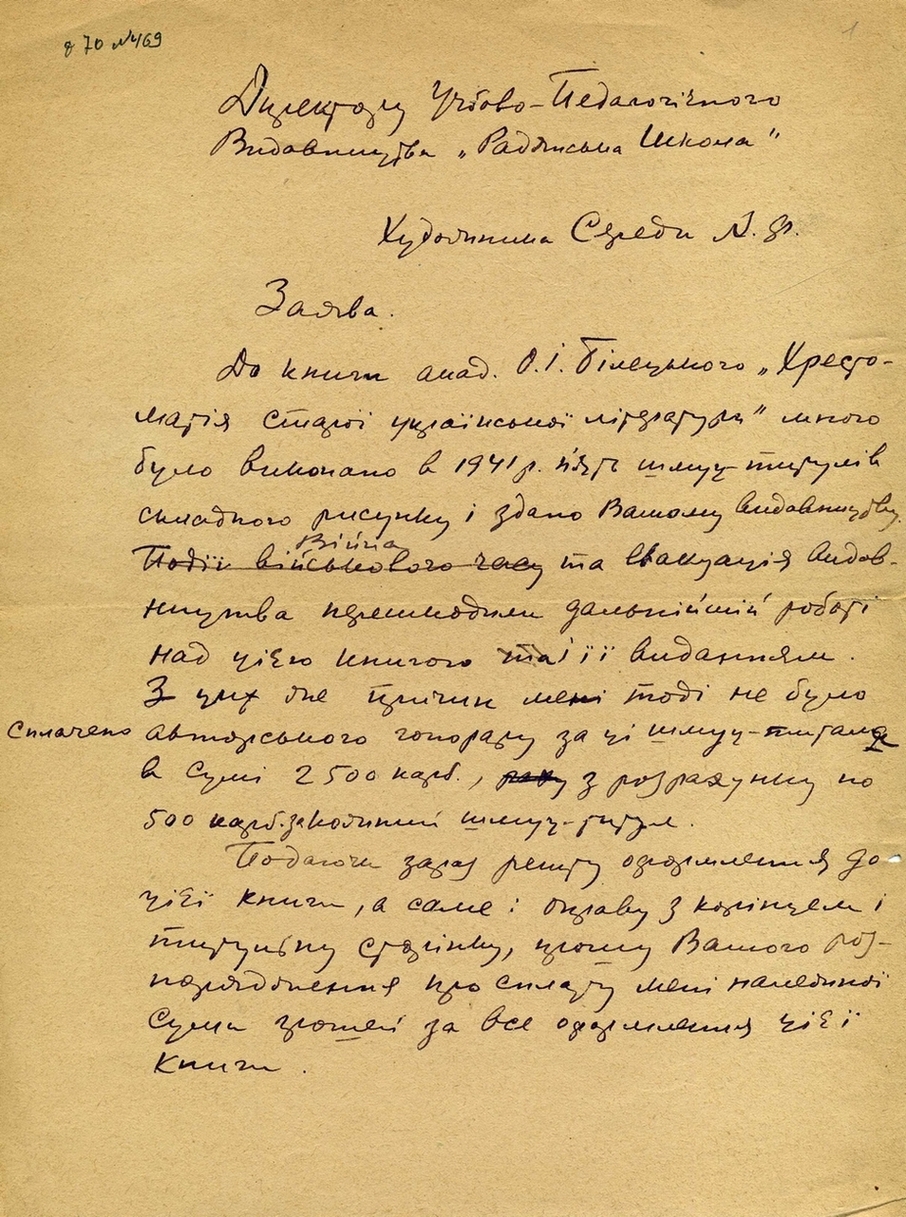 ф 70 №169
1
Директору Учбово-Педагогічного
Видавництва „Радянська Школа"
Художника Середи А. Ф.
Заява.
До книги акад. О.І. Білецького „Хресто-
матія старої української літератури" мною
було виконано в 1941 р. п'ять шмуц-титулів
складного рисунку і здано Вашому видавництву.
Війна
Події військового часу та евакуація видав-
ництва перешкодили дальнійшій роботі
над цією книгою та і її виданням.
З цих же причин мені тоді не було
Сплачено авторського гонорару за ці шмуц-титули
в сумі 2500 карб., з розрахунку по
500 карб. за кожний шмуц-титул.
Подаючи зараз решту оформлення до
цієї книги, а саме: оправу з корінцем і
титульну сторінку, прошу Вашого роз-
порядження про сплату мені належної
суми грошей за все оформлення цієї
книги.